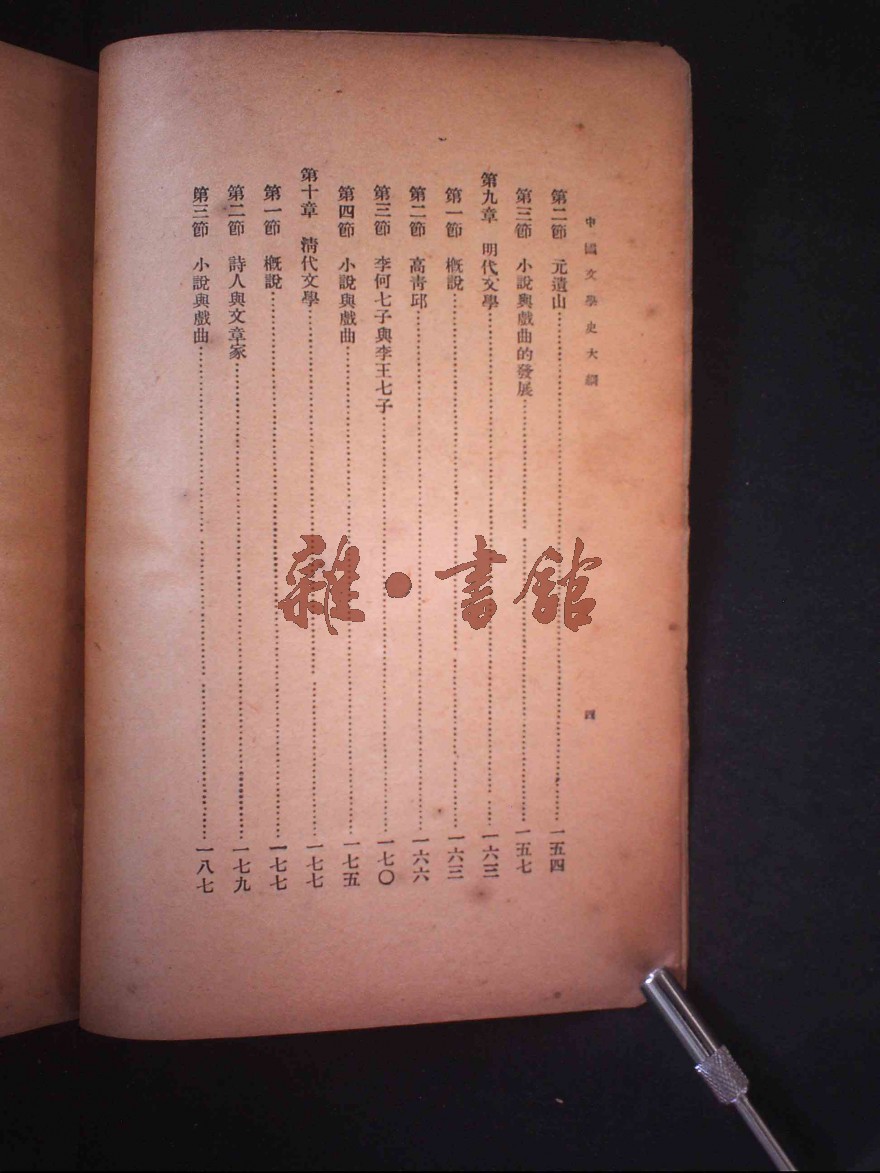 中國文學史大綱
四
第二節 元遺山……一五四
第三節 小說與戲曲的發展……一五七
第九章 明代文學……一六三
第一節 概說……一六三
第二節 高青邱……一六六
第三節 李何七子與李王七子……一七〇
第四節 小說與戲曲……一七五
第十章 清代文學……一七七
第一節 概說……一七七
第二節 詩人與文章家……一七九
第三節 小說與戲曲……一八七
雜·書館